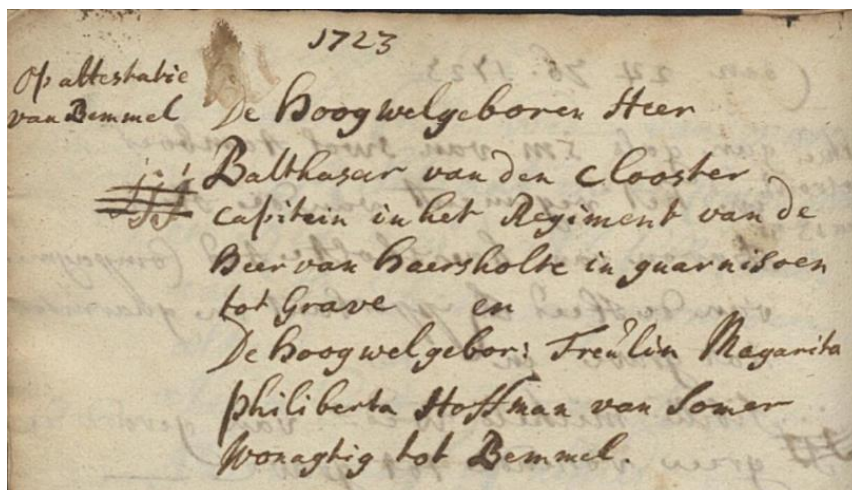 1723
Op attestatie
van Bemmel
De Hoogwelgeboren Heer
Balthasar van den Clooster
Capitein in het Regiment van de
Heer van Haersholte in guarnisoen
tot Grave en
De hoogwelgebor: Freülin Magarita
philiberta Hoffman van Somer
Wonagtig tot Bemmel.